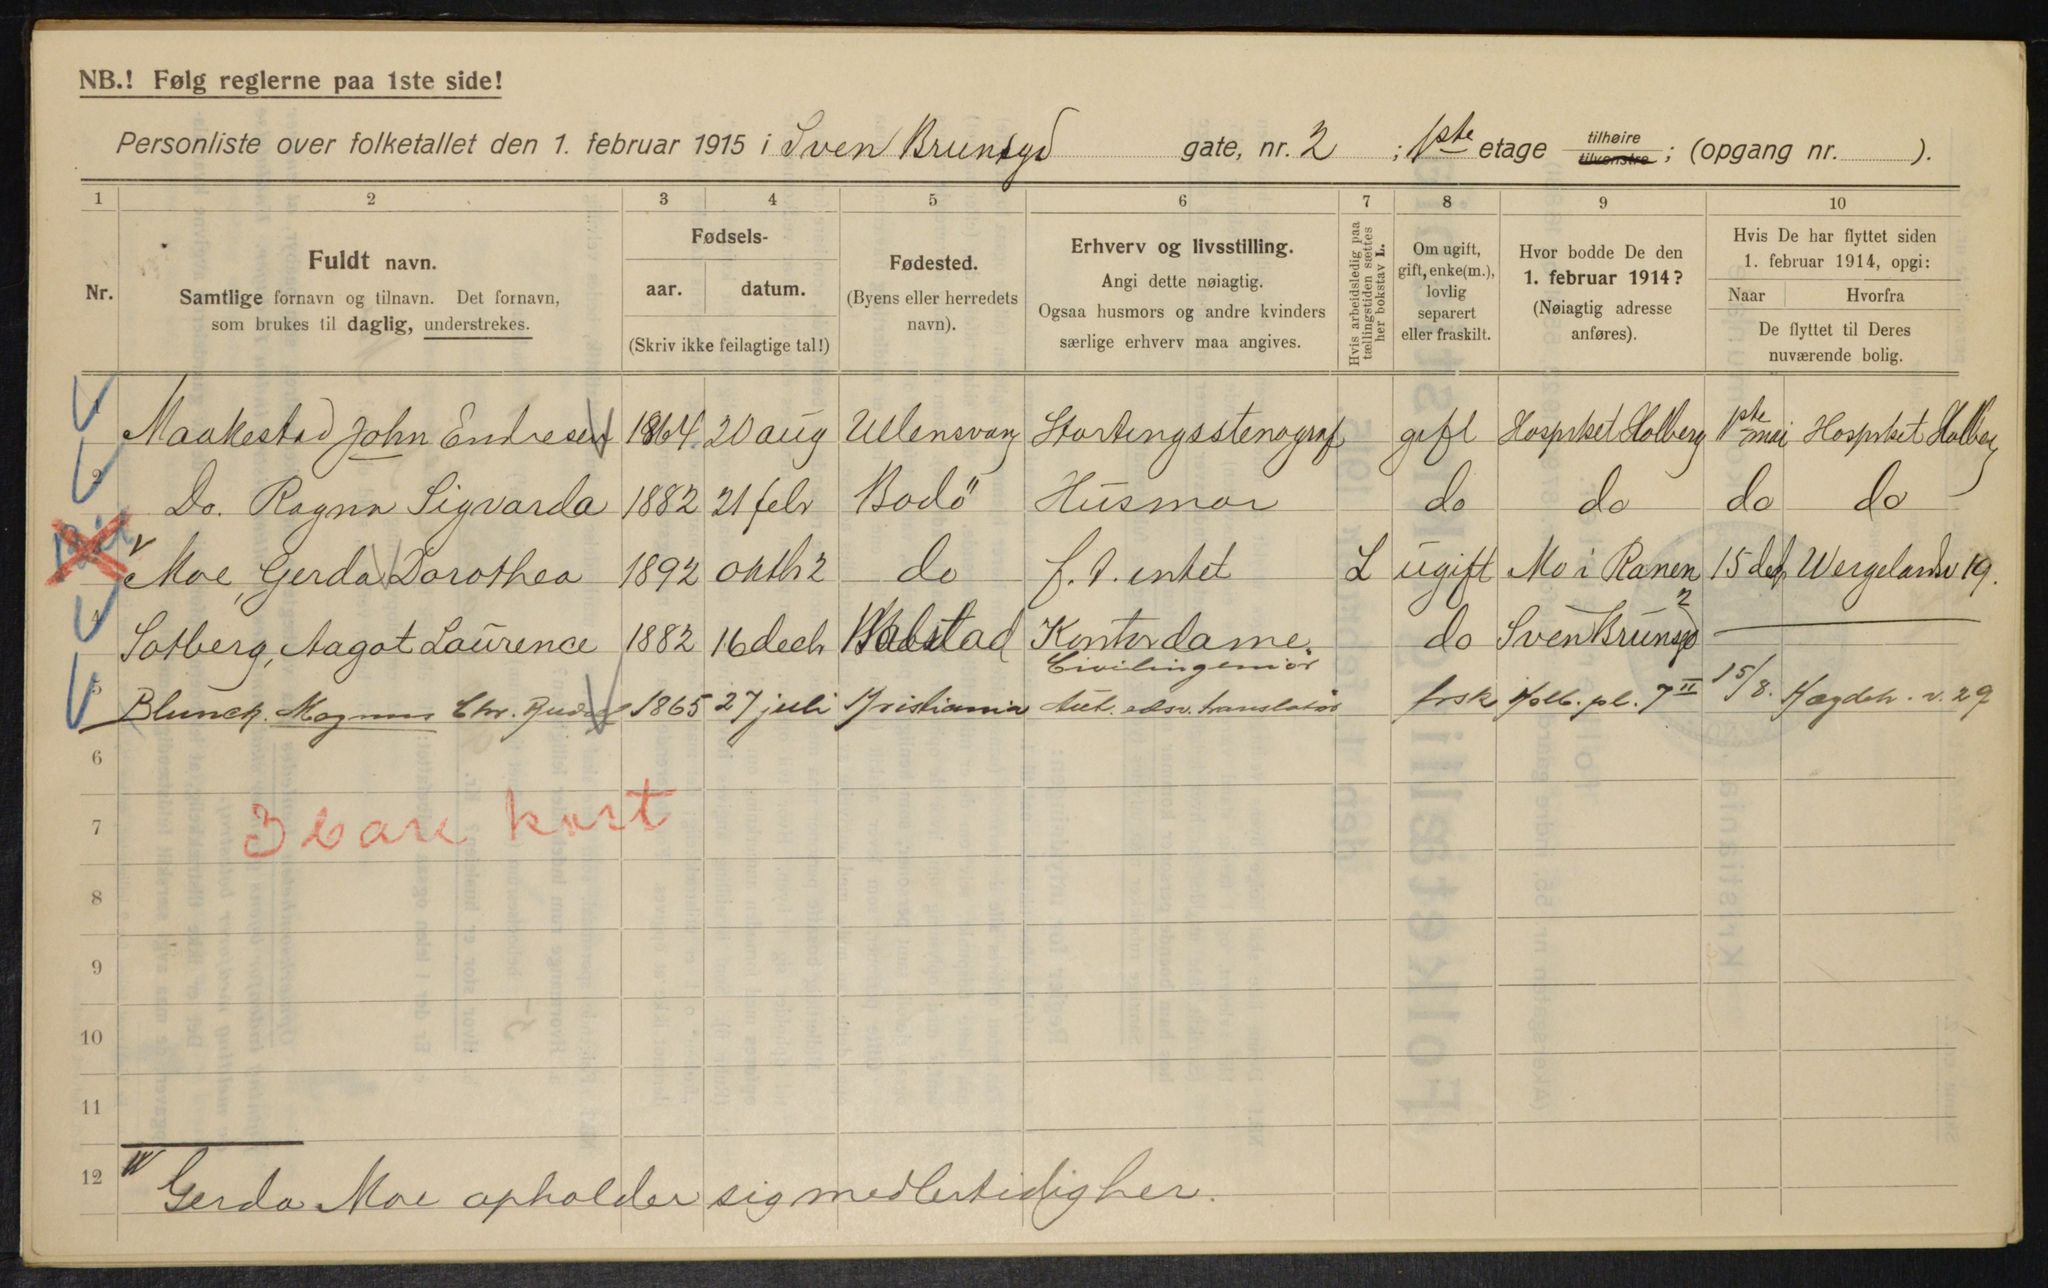 NB.! Følg reglerne paa 1ste side!
Personliste over folketallet den 1. februar 1915 i Sven Brunsgd gate, nr. 2 ; 1ste etage tilhøire tilvenstre ; (opgang nr. ).
1 2 3 4 5 6 7 8 9 10
Nr.
Fuldt navn.
Samtlige fornavn og tilnavn. Det fornavn,
som brukes til daglig, understrekes.
Fødsels-
aar. datum.
(Skriv ikke feilagtige tal!)
Fødested.
(Byens eller herredets
navn).
Erhverv og livsstilling.
Angi dette nøiagtig.
Ogsaa husmors og andre kvinders
særlige erhverv maa angives.
Hvis arbeidsledig paa
tællingstiden sættes
her bokstav L.
Om ugift,
gift, enke(m.),
lovlig
separert
eller fraskilt.
Hvor bodde De den
1. februar 1914?
(Nøiagtig adresse
anføres).
Hvis De har flyttet siden
1. februar 1914, opgi:
Naar Hvorfra
De flyttet til Deres
nuværende bolig.
1 Maakestad John Endresen 1864 20 aug Ullensvang Stortingsstenograf gift Hospitset Holberg 1ste mai Hospitset Holberg
2 Do. Ragna Sigvarda 1882 21 febr Bodö Husmor do do do do
Moe, Gerda Dorothea 1892 oktbr 2 do f. t. intet L ugift Mo i Ranen 15 de Wergelandsv 19.
4 Solberg, Aagot Laurence 1882 16 decbr Kontordame. do Sven Brunsgd 2
5 Blunck, Magnus Chr. 1865 27 juli Kristiania Civilingeniör Aut. edsv. translatör frsk Holb. pl. 7 II 15/8. Hægdeh. v. 29
6
3 bare kort
7
8
9
10
11
12
Gerda Moe opholder sig medlertidig her.